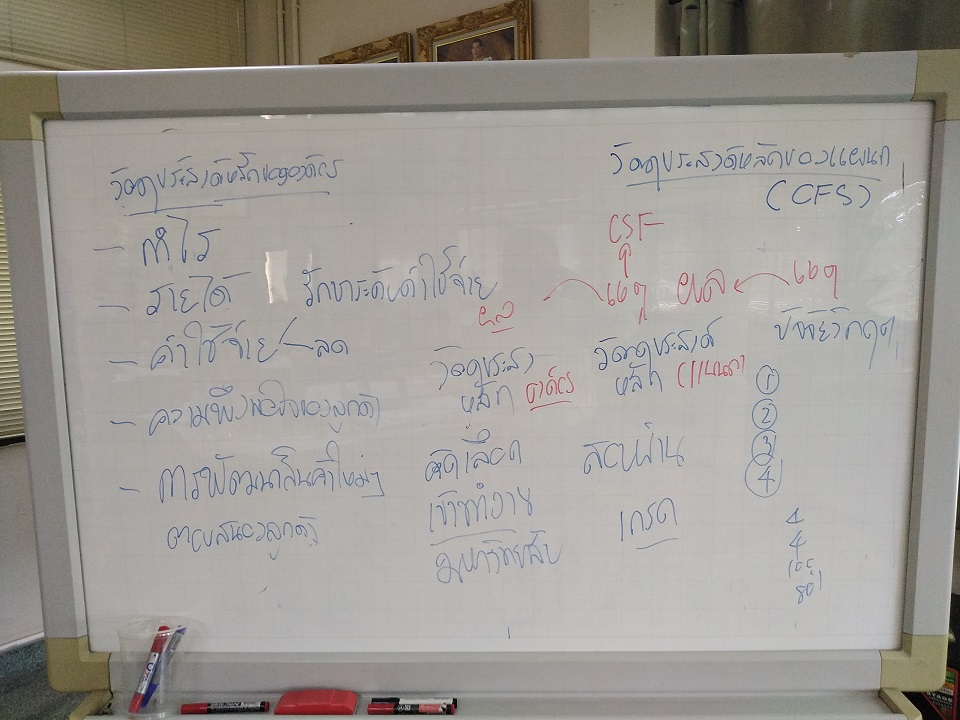 วัตถุประสงค์หลักขององค์กร
- กำไร
- รายได้
รักษาระดับค่าใช้จ่าย
- ค่าใช้จ่าย - ลด
- ความพึงพอใจของลูกค้า
- การพัฒนาสินค้าใหม่ๆ
ตอบสนองลูกค้า
วัตถุประสงค์หลักของแผนก
(CFS)
CSF
ผล
เหตุ
ผล
เหตุ
วัตถุประสงค์
หลัก องค์กร
วัตถุประสงค์
หลัก (แผนก)
ปัจจัยวิกฤต
1
2
3
4
คัดเลือก
เข้าทำงาน
สอบผ่าน
เกรด
4
4